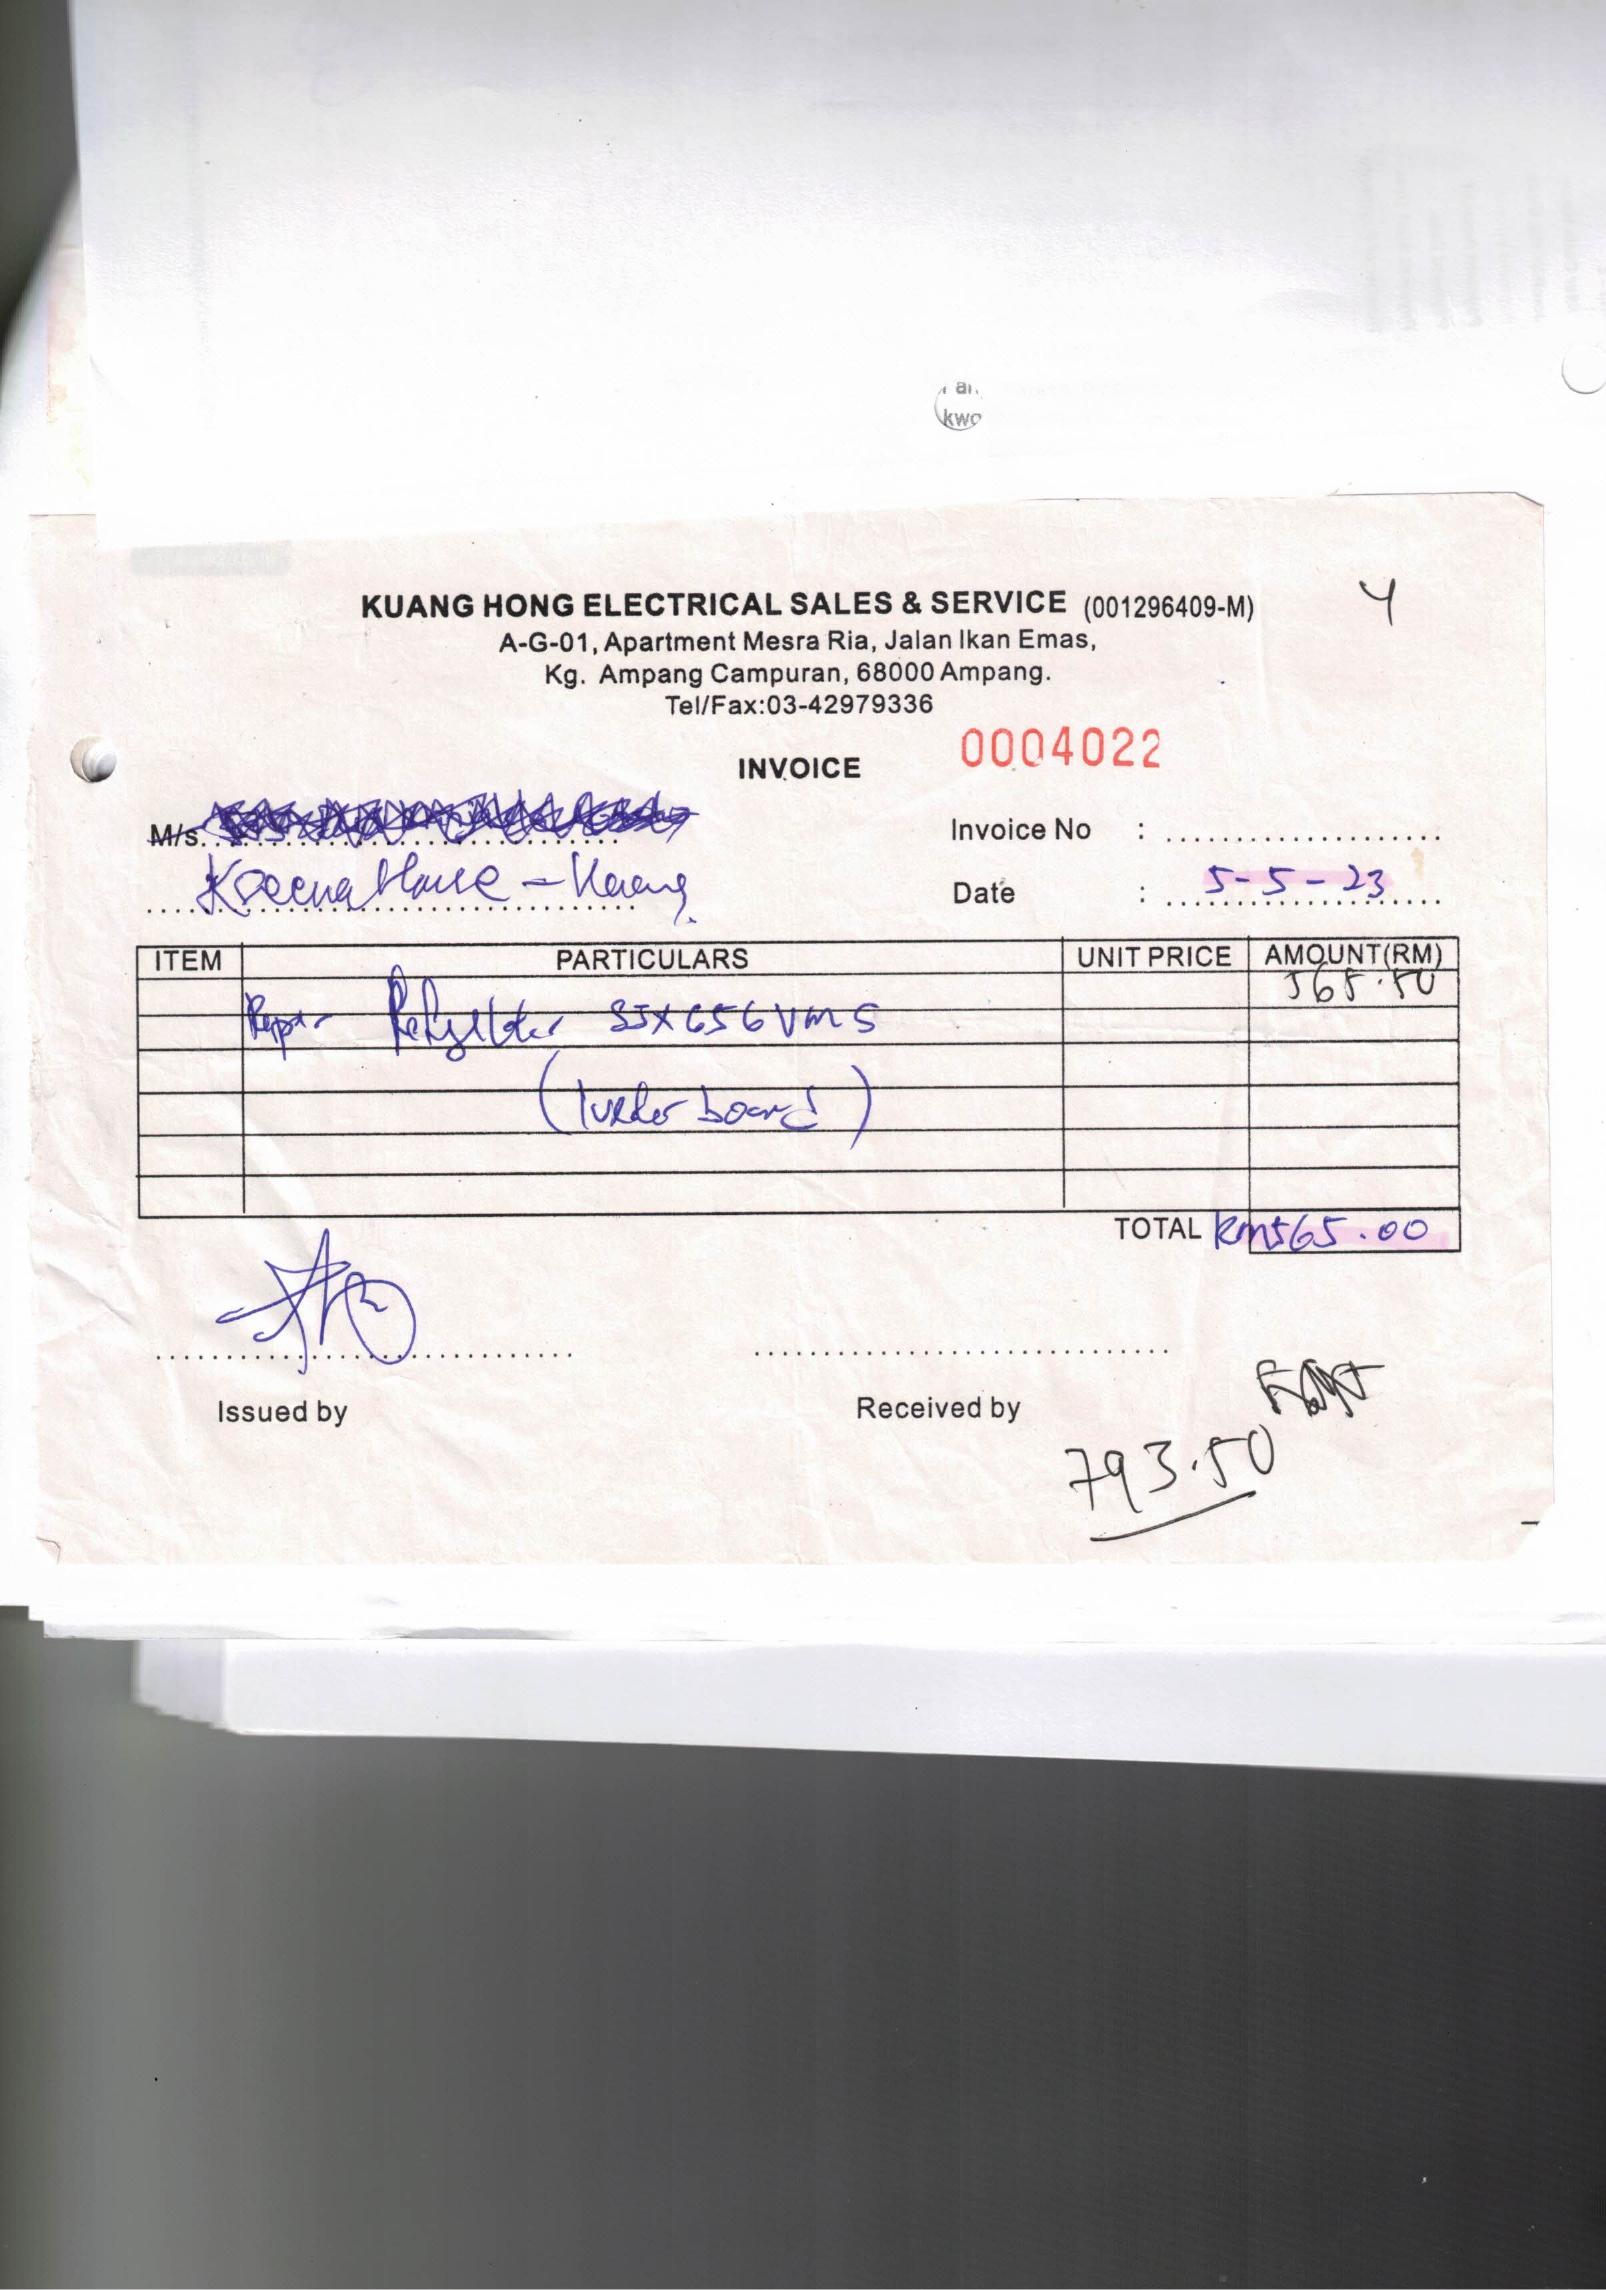 kwo
4
KUANG HONG ELECTRICAL SALES & SERVICE (001296409-M)
A-G-01, Apartment Mesra Ria, Jalan Ikan Emas,
Kg. Ampang Campuran, 68000 Ampang.
Tel/Fax:03-42979336
INVOICE 0004022
M/s.
Invoice No :
House - Kuang
Date : 5-5-23
ITEM PARTICULARS UNIT PRICE AMOUNT(RM)
565.50
Repair SJX656VMS
( board)
TOTAL RM565.00
Issued by
Received by
793.50